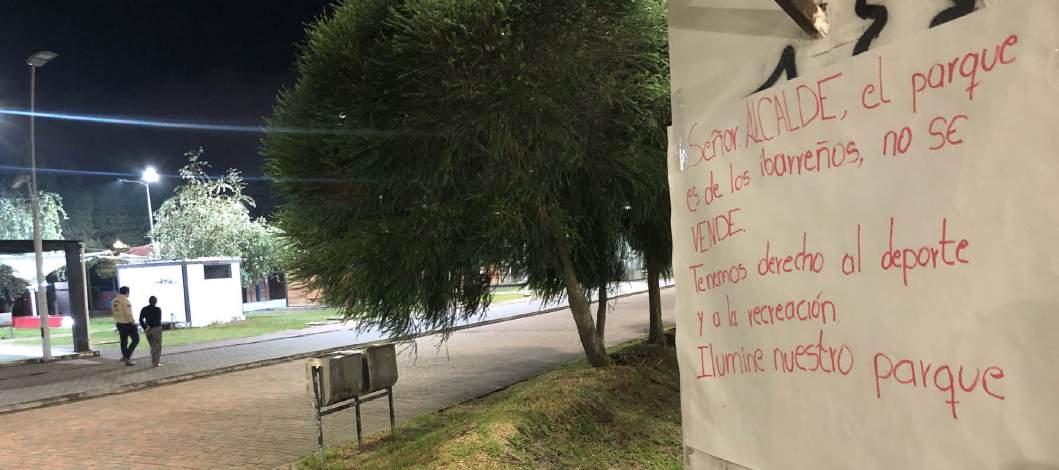 Señor ALCALDE, el parque
es de los ibarreños, no SE
VENDE.
Tenemos derecho al deporte
y a la recreación.
Ilumine nuestro parque